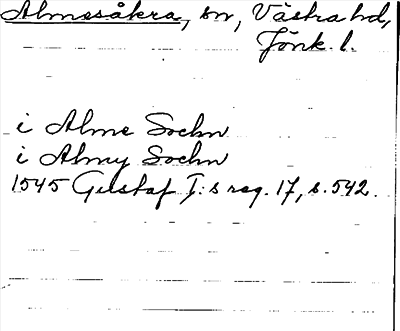 Almesåkra, sn, Västra hd,
Jönk. l.
i Alme Sochn
i Almy Sochn
1545 Gustaf I:s reg. 17, s. 542.